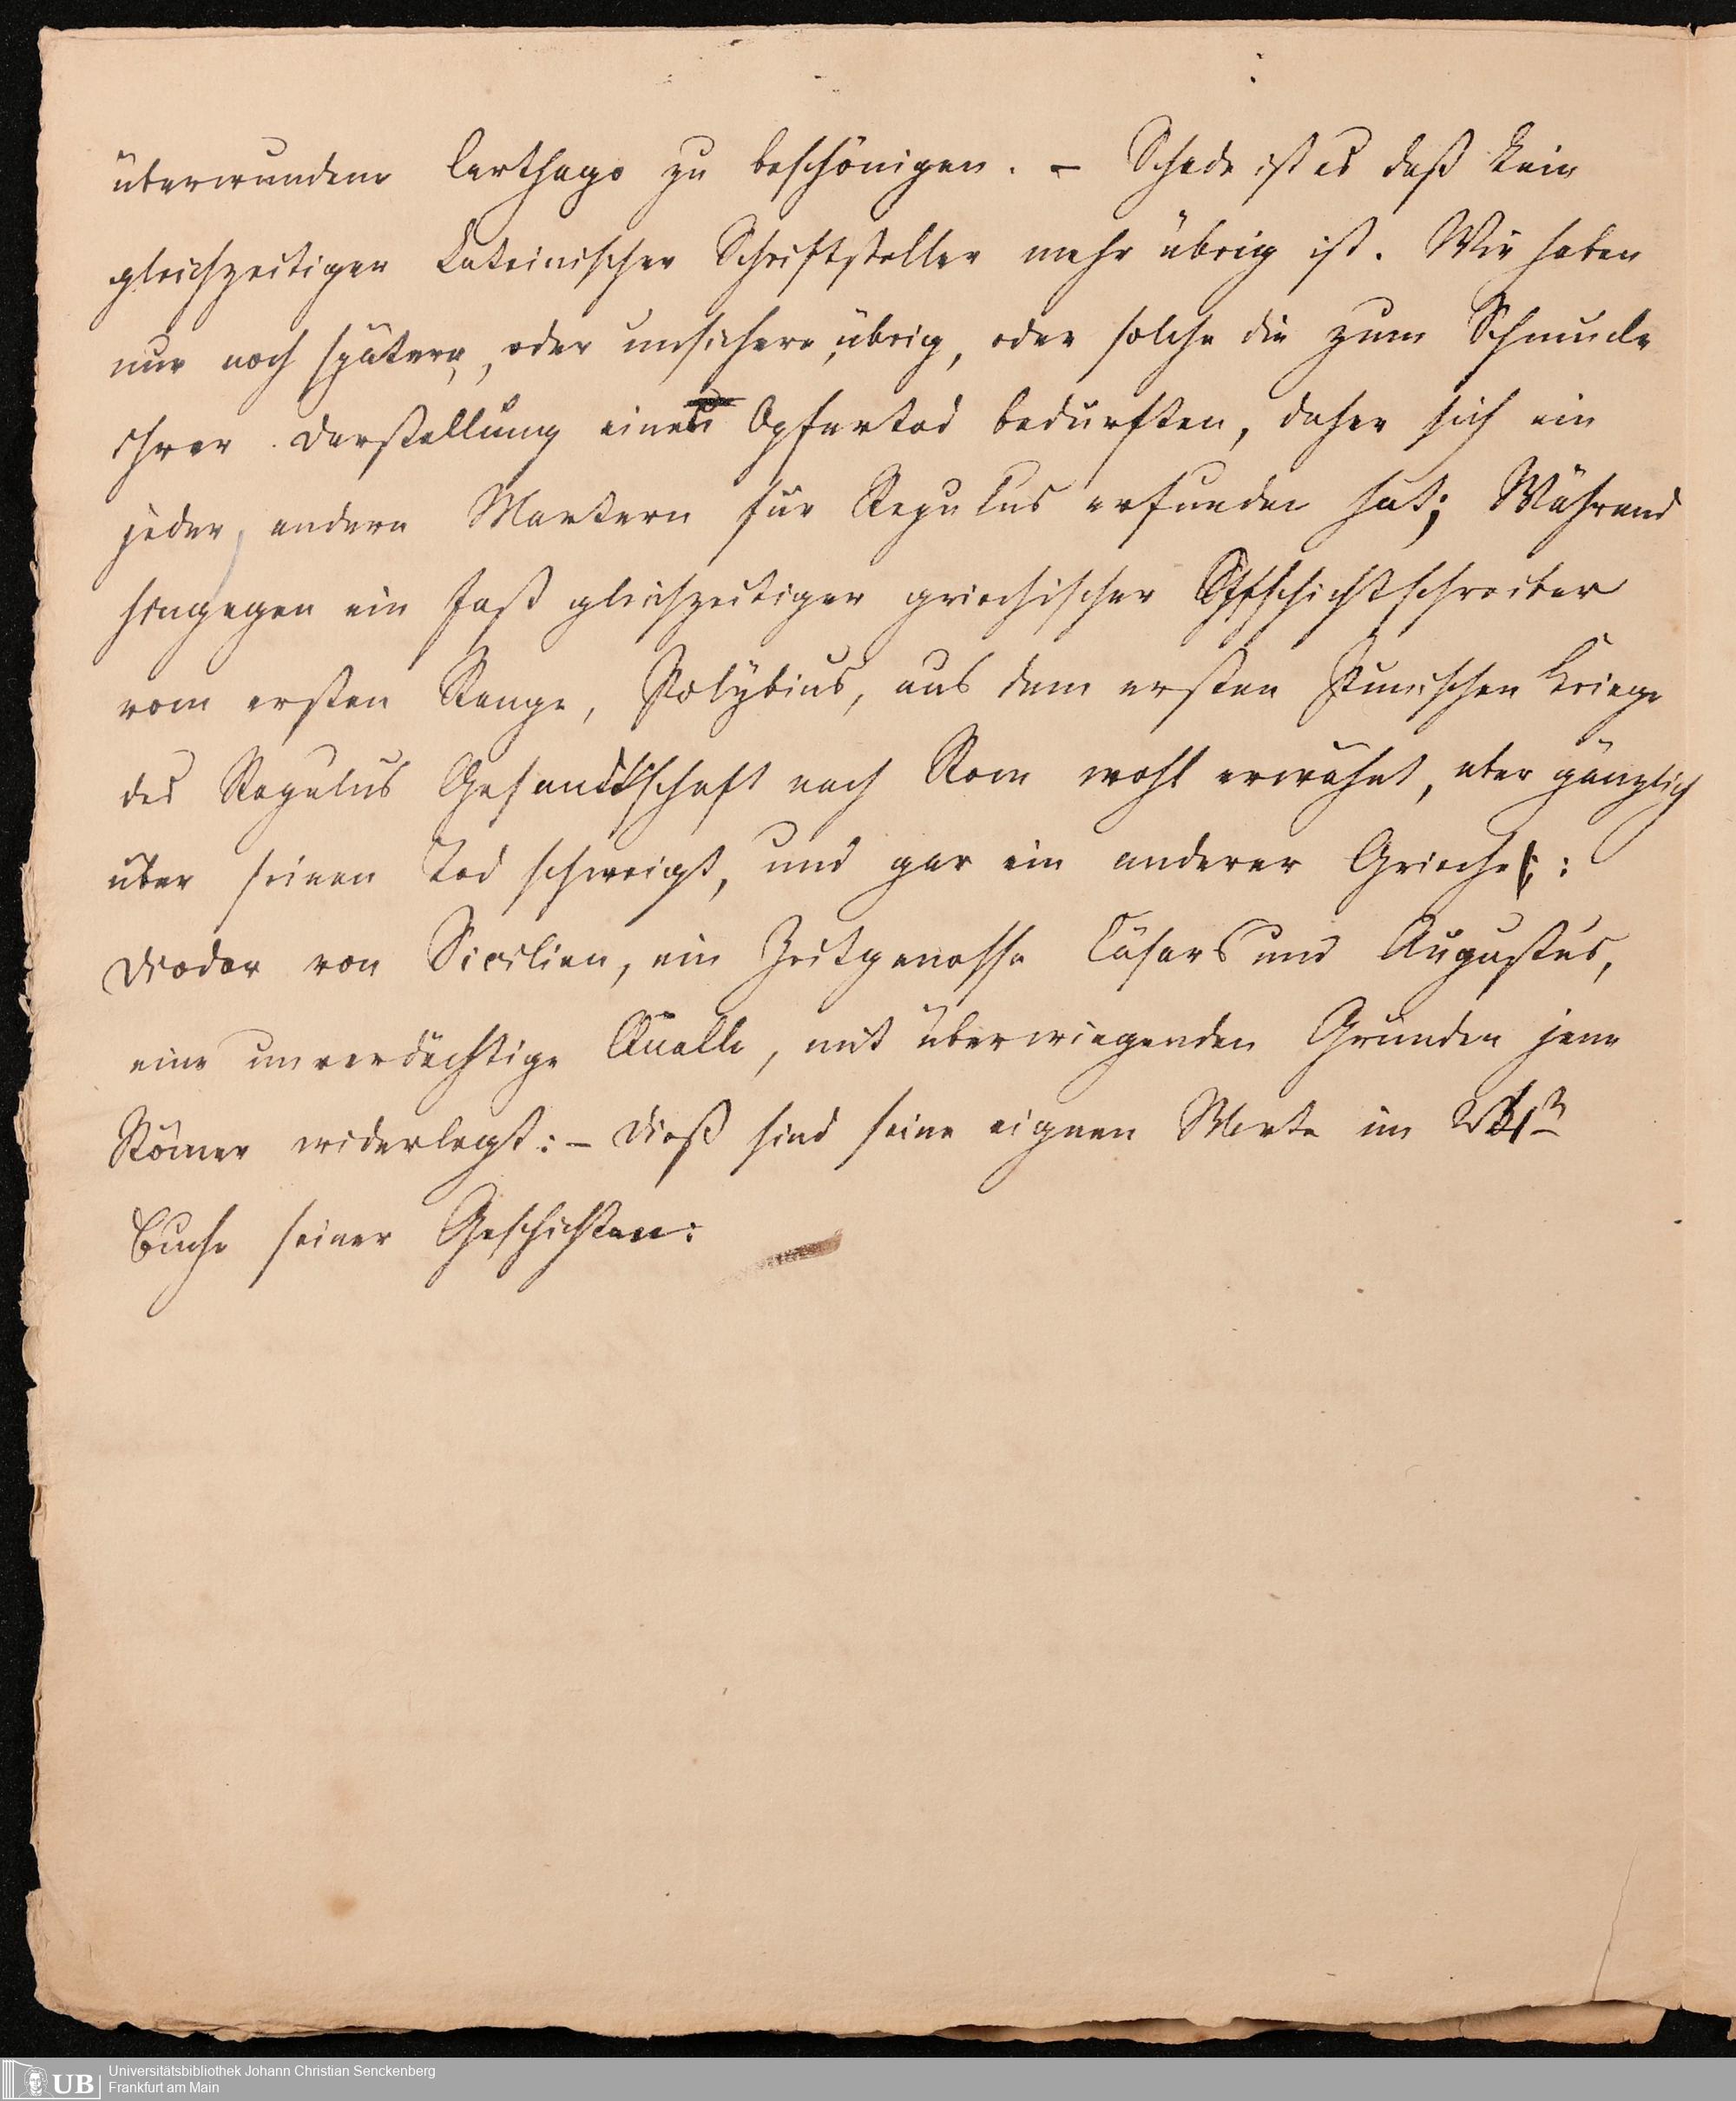 überwundene Carthago zu beschönigen. – Schade ist es daß kein
gleichzeitiger Lateinischer Schriftsteller mehr übrig ist. Wir haben
nur noch spätere, oder unsichere übrig, oder solche die zum Schmucke
ihrer Darstellung einen Opfertod bedurften, daher sich ein
jeder, andere Martern für Regulus erfunden hat; Während
hingegen ein fast gleichzeitiger griechischer Geschichtschreiber
vom ersten Range, Polÿbius, aus dem ersten Punischen Kriege
des Regulus Gesandtschaft nach Rom wohl erwähnt, aber gänzlich
über seinen Tod schweigt, und gar ein anderer Grieche:
Diodor von Sicilien, ein Zeitgenosse Cäsars und Augustus,
eine unverdächtige Quelle, mit überwiegenden Gründen jene
Römer widerlegt: – Dieß sind seine eignen Worte im
Buche seiner Geschichten:
Universitätsbibliothek Johann Christian Senckenberg
Frankfurt am Main
UB